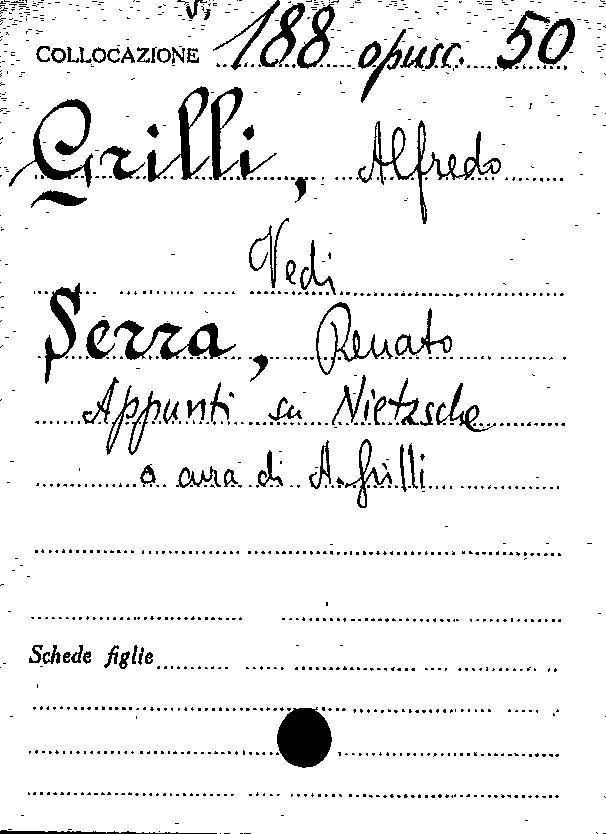 COLLOCAZIONE 188 opusc. 50
Grilli, Alfredo
Vedi
Serra, Renato
Appunti su Nietzsche
a cura di A. Grilli
Schede figlie